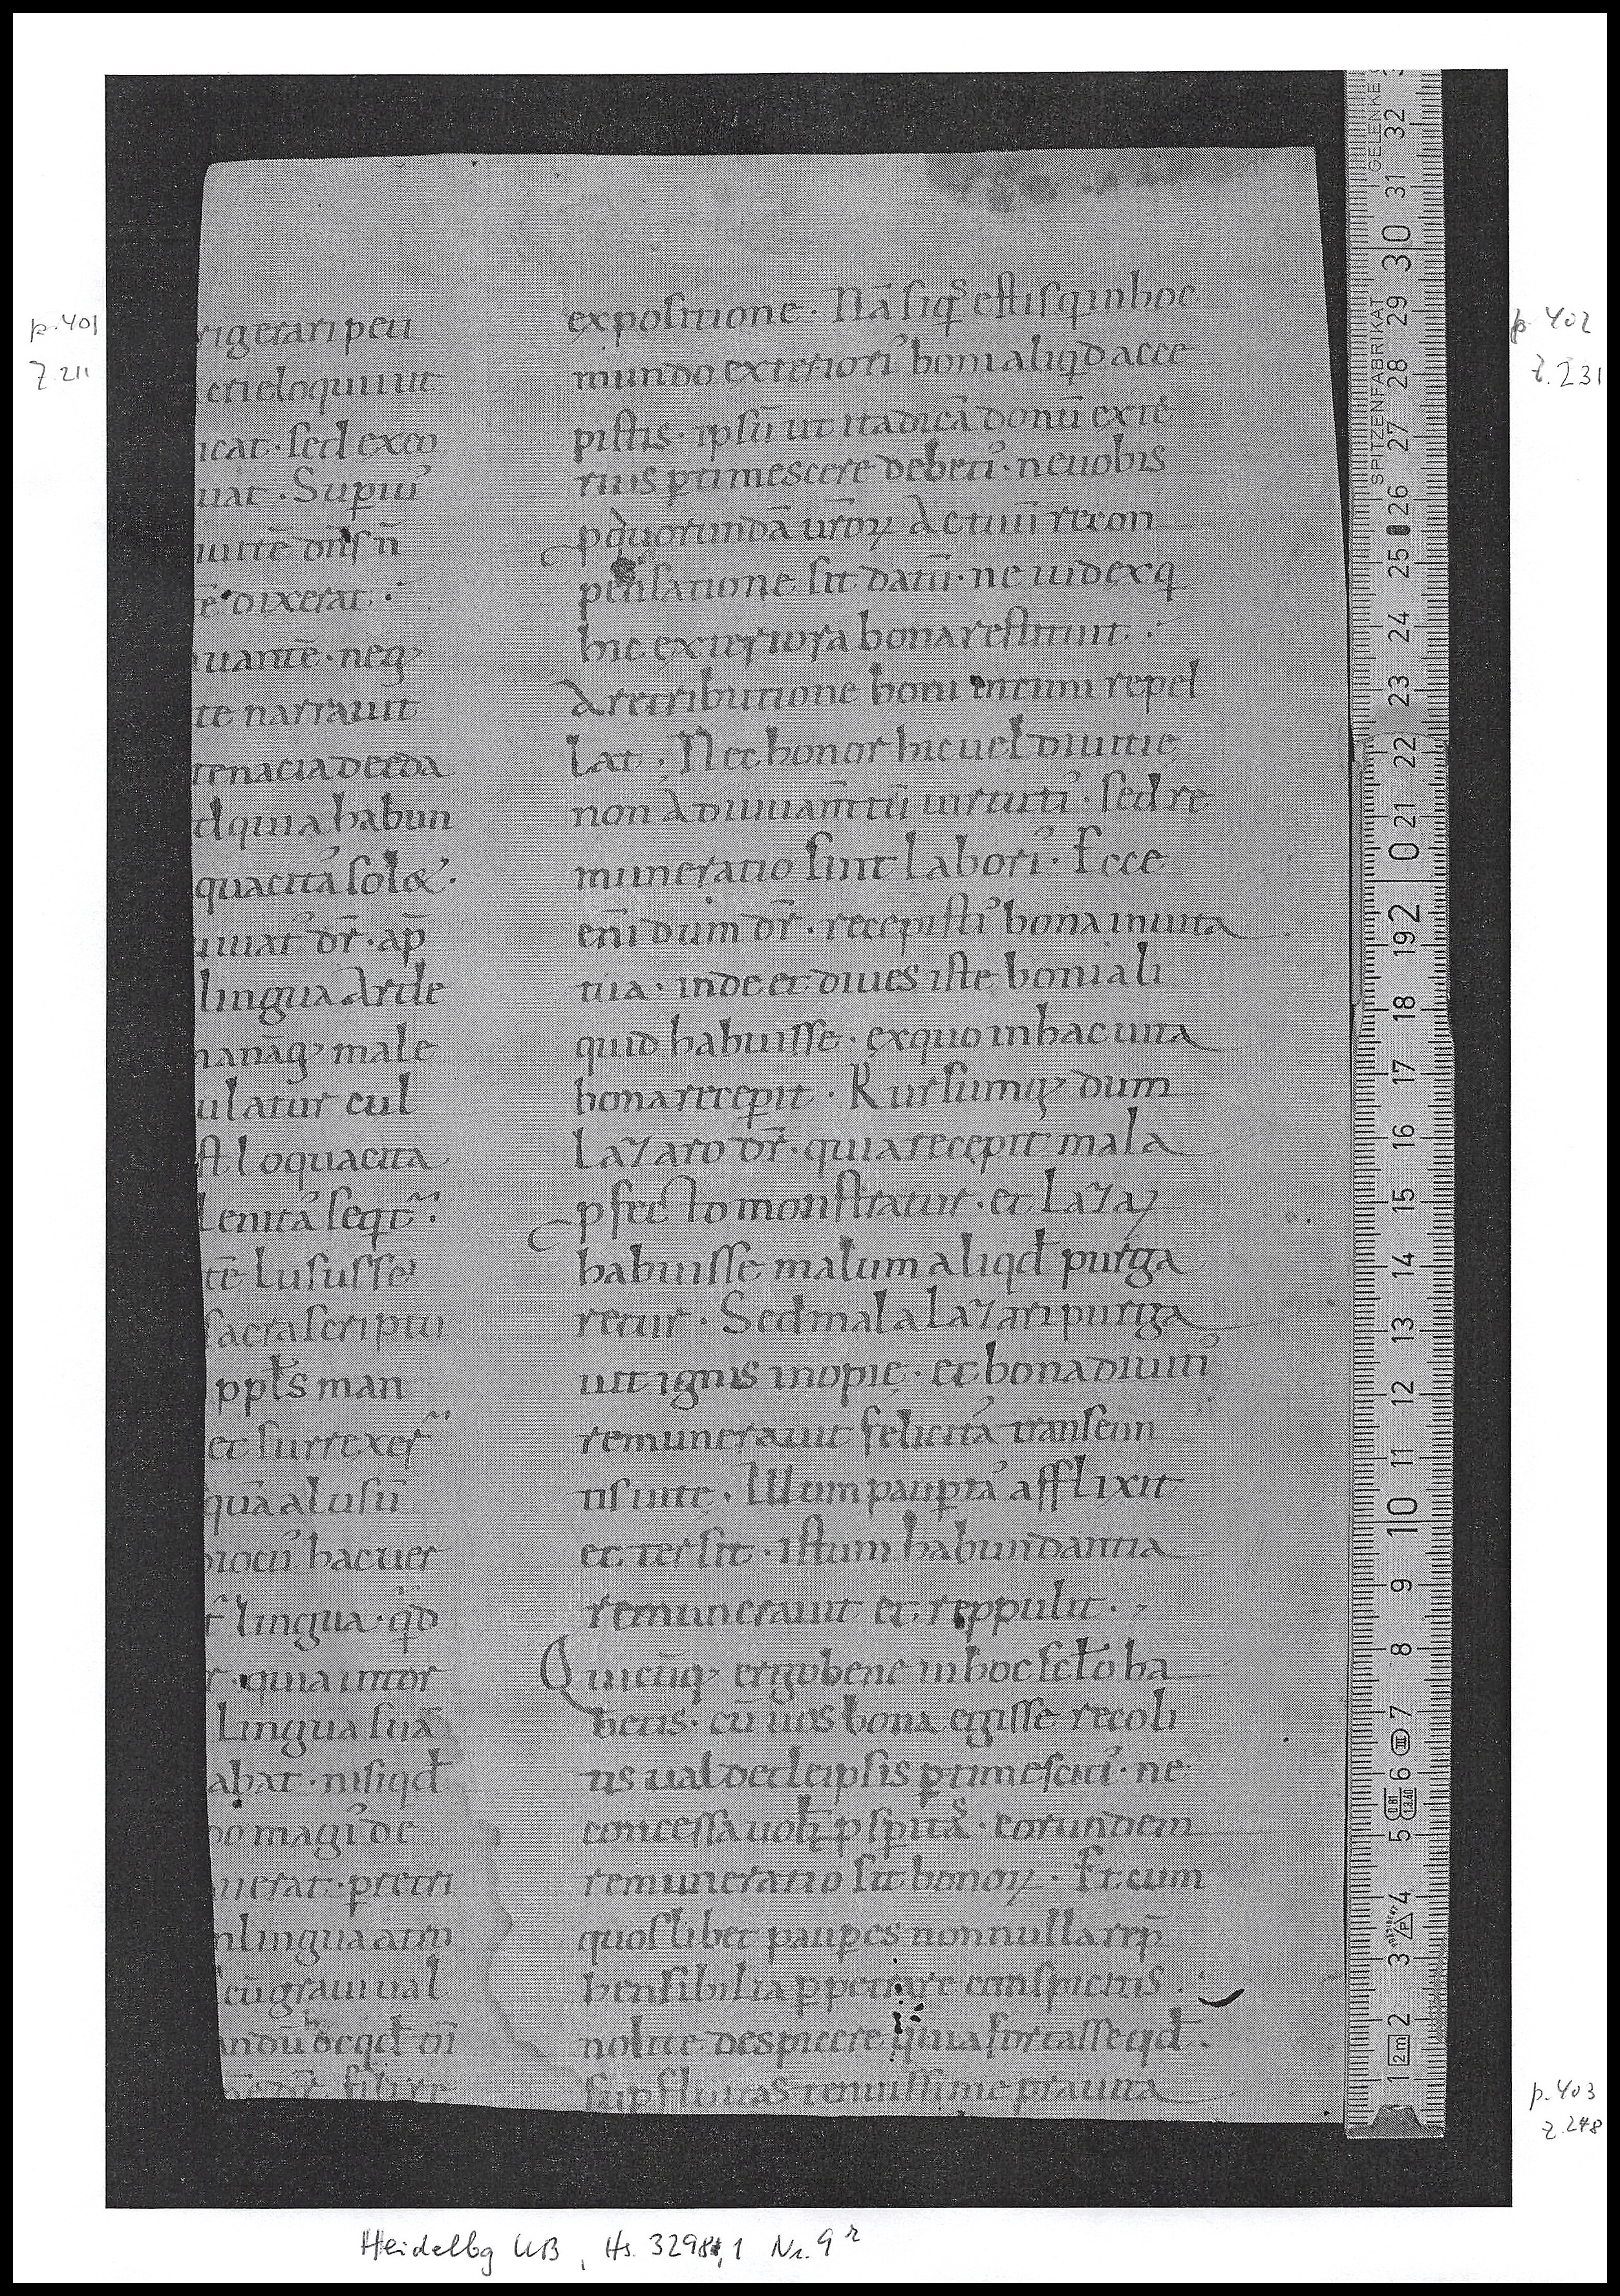 p. 401
Z. 211
rigerari peti
et eloquiu ut
icat · sed exeo
uat · Supiu᾽
uitē dn̄s n̄
ē dixerat .
uantē · neq;
te narrauit
tenacia de eda
d quia habun
quacita᾽ solet .
uiuat᾽ dr̄ · ap̄
lingua arde
manāq; male
ulatur cul
st loquacita
lenita᾽ seqt᷑ .
tē lususse
sacra scriptu
ppl̄s man
et surrexer᷑
quā a lusū
iocū hacuer
t᷑ lingua · qd
r · quia inter
lingua suā
abat · nisi qd̄
do magi᾽ de
uerat · p̲retri
n lingua atm̄
cū graui ual
andū hoc qd̄ oī
dr̄ fili re
expositione · Nā siq͛ estis q in hoc
mundo exteriori᾽ boni aliqd acce
pistis · ipsū ut ita dicā donū exte
rius p̲timescere debeti᾽ · ne uobis
p quorundā ur̄oꝝ actuū recon
pensatione sit datū · ne iudex q
hic exteriora bona restituit .
A retributione boni intimi repel
lat . Nec honor hic uel diuitie
non adiuuam̄tū uirtuti᾽ · sed re
muneratio sint labori᾽ · Ecce
eni᷑ dum dr̄ · recepisti᾽ bona in uita
tua · inde et diues iste boni ali
quid habuisse · ex quo in hac uita
bona recep̲it · Rursumq; dum
lazaro dr̄ · quia recepit mala
p̲fecto monstratur · et lazaꝝ
habuisse malum aliqd̄ purga
retur · Sed mala lazari purga
uit ignis inopie · et bona diuiti᾽
remunerauit felicita᾽ transeun
tis uite . Illum paup̲ta᾽ afflixit
et tersit · istum habundantia
remunerauit et reppulit .
Quicūq; ergo bene in hoc scl̄o ha
betis · cū uos bona egisse recoli
tis ualde de ipsis p̲timesciti᾽ · ne
concessa uob̄ p̲sp̲ita᾽s · eorundem
remuneratio sit bonoꝝ · Et cum
quoslibet paup̲es nonnulla rep̄
hensibilia p̲petrare conspicitis .
nolite despicere quia fortasse qd̄ .
sup̲fluitas tenuissime prauita
p. 402
Z. 231
p. 403
Z. 248
Heidelbg UB, Hs. 3298,1 Nr. 9ʳ
SPITZENFABRIKAT
GELENKE
32
31
30
29
28
27
26
25
24
23
22
21
20
19
18
17
16
15
14
13
12
11
10
9
8
7
6
5
4
3
2
1
2m